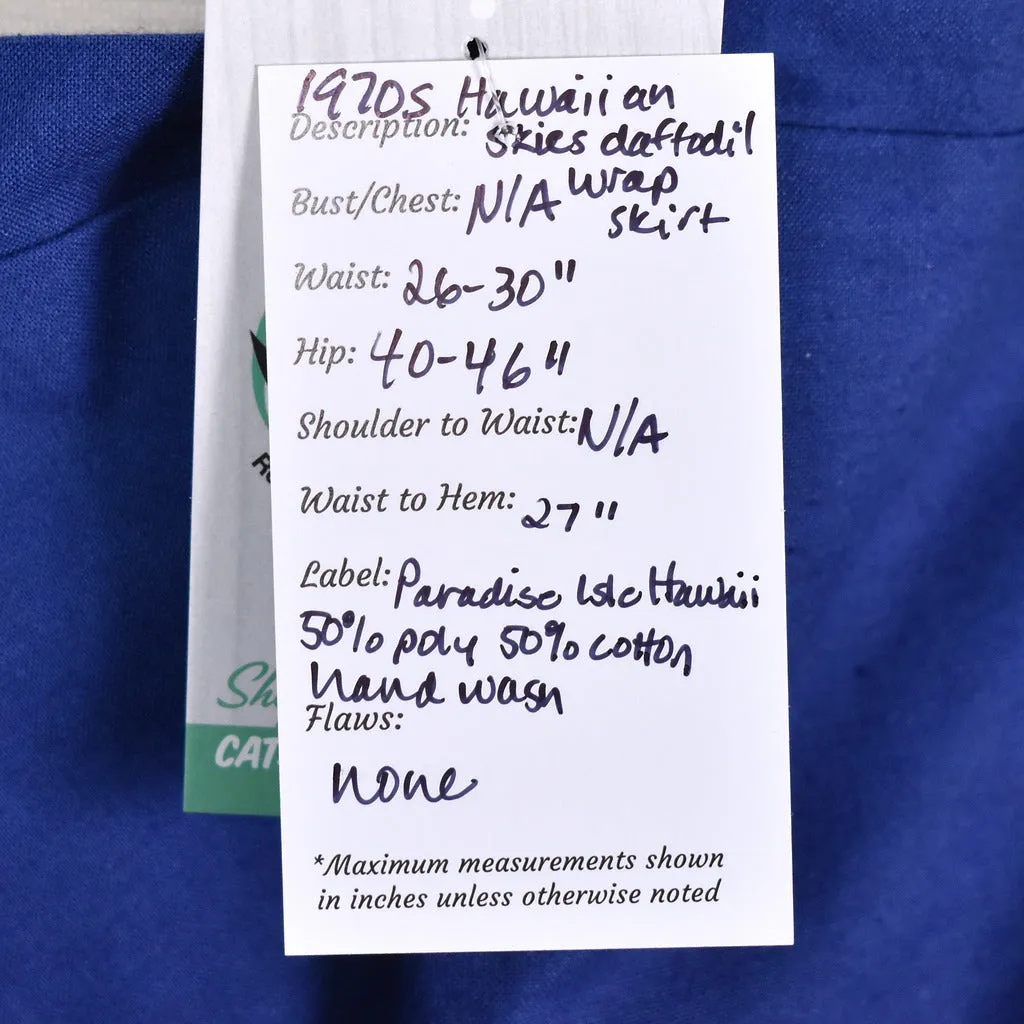 1970s Hawaiian
Description: skies daffodil
wrap
Bust/Chest: N/A
skirt
Waist: 26-30"
Hip: 40-46"
Shoulder to Waist: N/A
Waist to Hem: 27"
Label: Paradise Isle Hawaii
50% poly 50% cotton
hand wash
Flaws:
none
*Maximum measurements shown
in inches unless otherwise noted
Sh
CAT